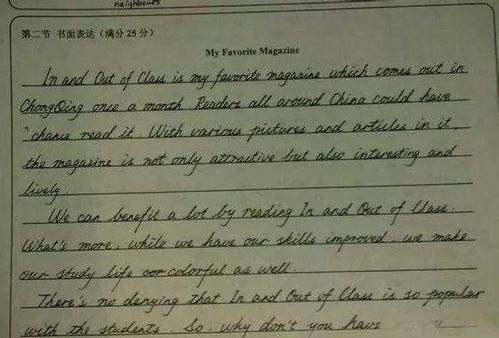 neighbours
第二节 书面表达（满分 25 分）
My Favorite Magazine
In and Out of Class is my favorite magazine which comes out in
ChongQing once a month. Readers all around China could have
chance read it. With various pictures and articles in it,
the magazine is not only attractive but also interesting and
lively.
We can benefit a lot by reading In and Out of Class.
What's more, while we have our skills improved, we make
our study life cor colorful as well.
There's no denying that In and Out of Class is so popular
with the students. So, why don't you have